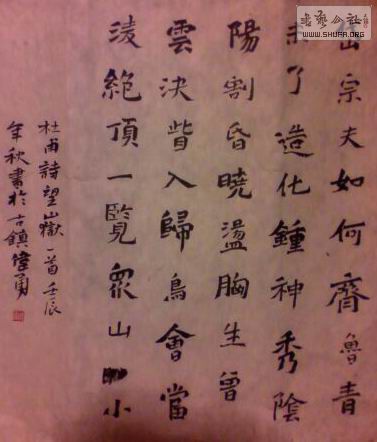 岱宗夫如何齊魯青
未了造化鍾神秀陰
陽割昏曉盪胸生曾
雲決眥入歸鳥會當
淩絕頂一覽眾山小
杜甫詩望嶽一首壬辰
年秋書於古鎮偉勇
書藝公社
WWW.SHUFA.ORG